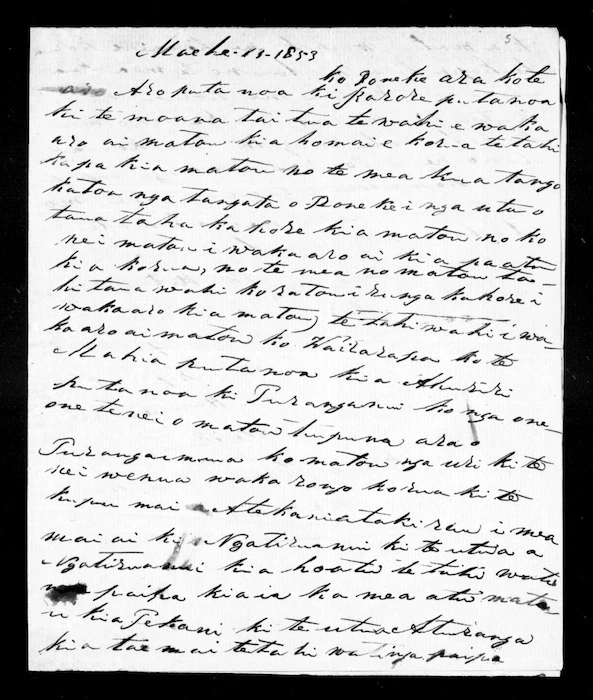 5
Maehe. 13. 1853
ko Poneke ara ko te
aro Aro puta noa ki Parore puta noa
ki te moana tai tua te wahi e waka
aro ai matou kia homai e korua tetahi
kapa kia matou no te mea kua tango
katoa nga tangata o Poneke i nga utu o
taua taha kahore kia matou no ko
nei matou i wakaaro ai kia paatu
kia korua, no te mea no matou
ki taua wahi ko ratou i runga kahore i
wakaaro kia matou, te tahi wahi i wa-
kaaro ai matou ko Wairarapa ko te
Mahia puta noa kia Ahuriri
puta noa ki Turanganui ko nga one-
one tenei o matou tupuna ara
Turangaimua ko matou nga uri ki te
nei wenua wakarongo korua ki te
kupu mai a Te Kaniatakirau i mea
mai ai ki Ngatiruanui ki te utua a
Ngatiruanui kia hoatu te tahi wati
paipa kia ia ka mea atu mato
u kia Te Kani ki te utua Aturanga
kia tae mai tetahi paipa